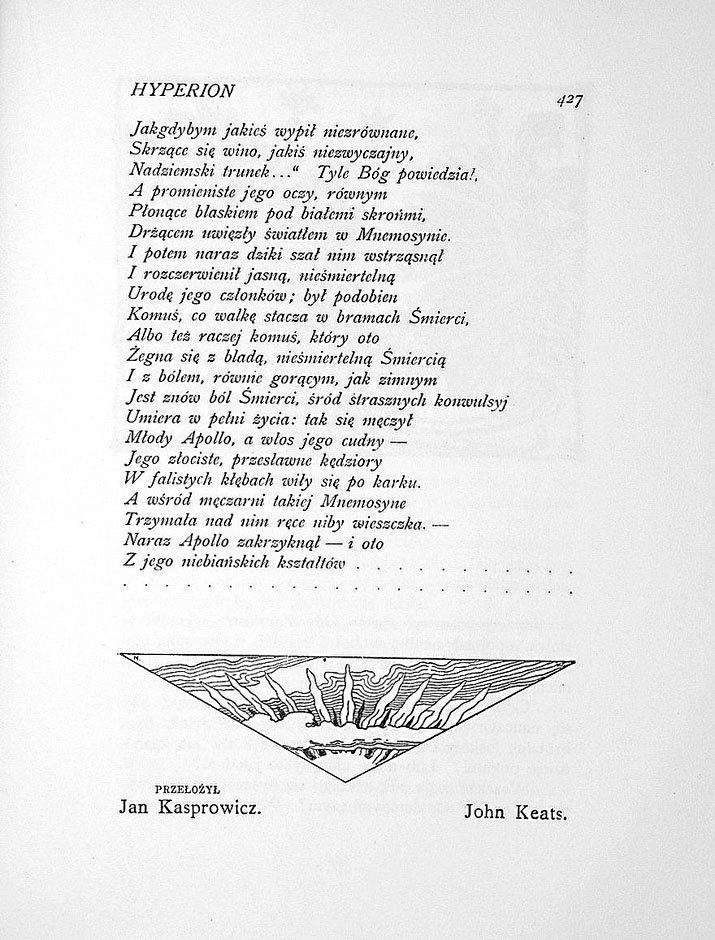 HYPERION
427
Jakgdybym jakieś wypił niezrównane,
Skrzące się wino, jakiś niezwyczajny,
Nadziemski trunek..." Tyle Bóg powiedział,
A promieniste jego oczy, równym
Płonące blaskiem pod białemi skrońmi,
Drżącem uwięzły światłem w Mnemosynie.
I potem naraz dziki szał nim wstrząsnął
I rozczerwienił jasną, nieśmiertelną
Urodę jego członków; był podobien
Komuś, co walkę stacza w bramach Śmierci,
Albo też raczej komuś, który oto
Żegna się z bladą, nieśmiertelną Śmiercią
I z bólem, równie gorącym, jak zimnym
Jest znów ból Śmierci, śród strasznych konwulsyj
Umiera w pełni życia: tak się męczył
Młody Apollo, a włos jego cudny —
Jego złociste, przesławne kędziory
W falistych kłębach wiły się po karku.
A wśród męczarni takiej Mnemosyne
Trzymała nad nim ręce niby wieszczka. —
Naraz Apollo zakrzyknął — i oto
Z jego niebiańskich kształtów . . . . . . . . . . .
. . . . . . . . . . . . . . . . . .
PRZEŁOŻYŁ
Jan Kasprowicz.
John Keats.